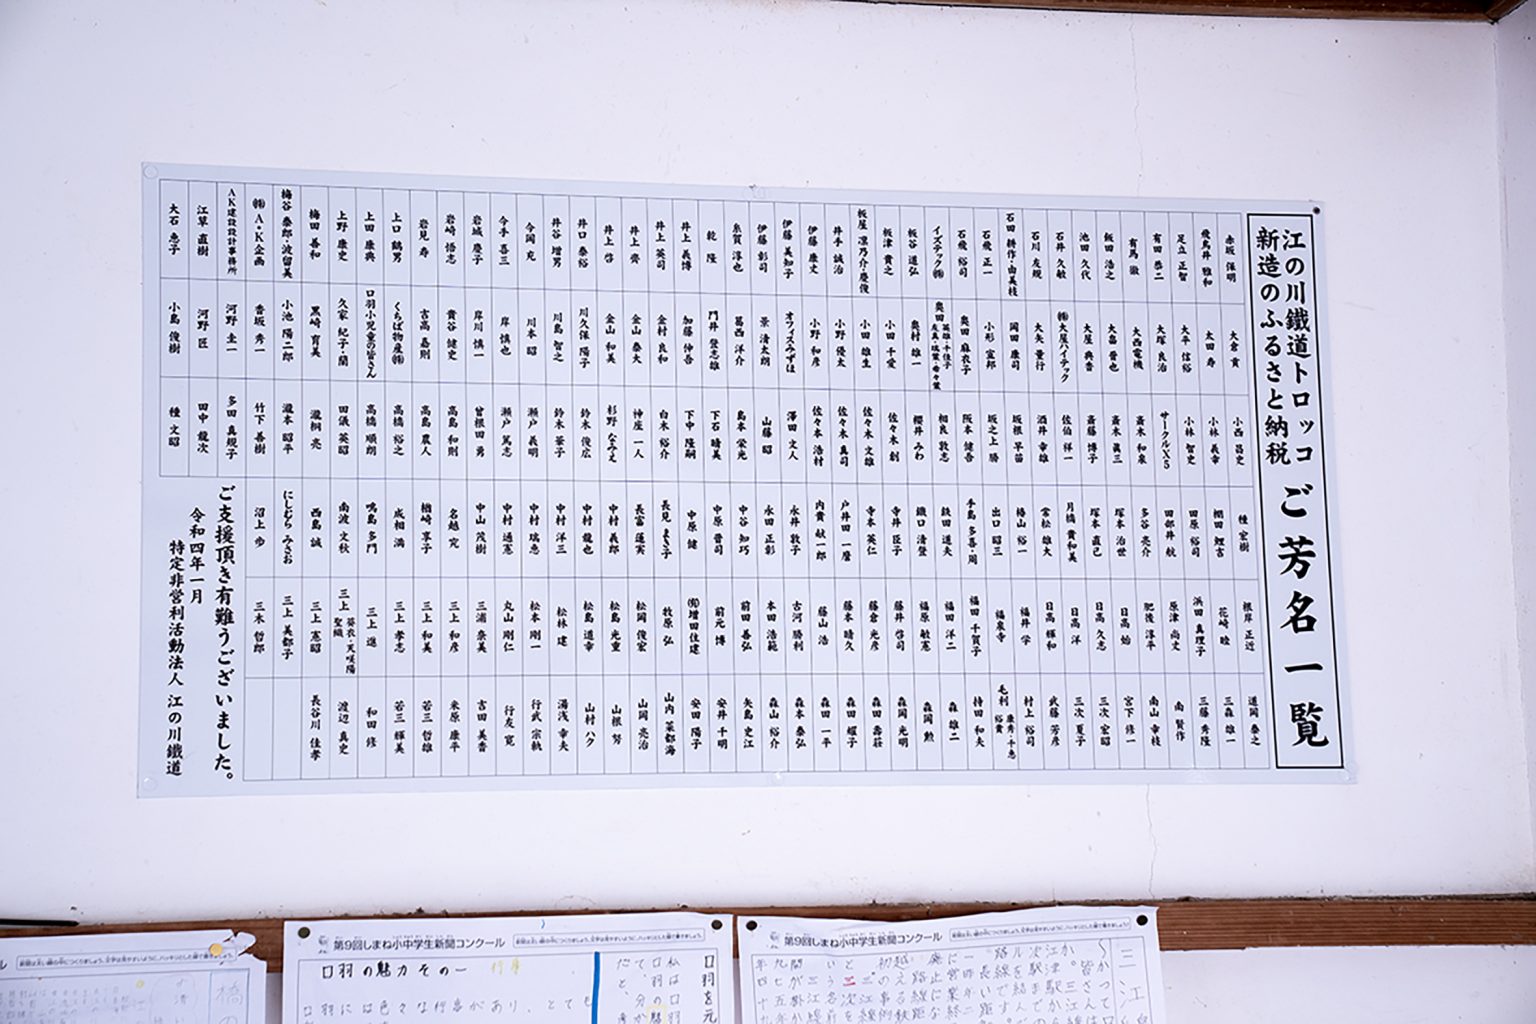 江の川鐵道トロッコ
新造のふるさと納税
ご芳名一覧
赤坂 保明
飛鳥井 雅和
足立 正智
有田 恭二
有馬 徹
飯田 浩之
池田 久代
石井 久敏
石川 友規
石田 耕作・由美枝
石飛 正一
石飛 裕司
イズテック㈱
板谷 道弘
板津 貴之
板屋 凛乃介・慶俊
井手 誠治
伊藤 康丈
伊藤 美知子
伊藤 彰司
糸賀 淳也
乾 隆
井上 義博
井上 英司
井上 齊
井上 啓
井口 泰裕
井谷 増男
今岡 克
今手 喜三
岩城 慶子
岩崎 悟志
岩見 寿
上口 鶴男
上田 康典
上野 康史
梅田 善和
梅谷 泰郎・波留美
㈱A・K企画
AK建設設計事務所
江草 直樹
大石 恵子
大倉 黄
太田 寿
大平 信裕
大塚 良治
大西電機
大畠 晋也
大屋 典香
㈱大屋ハイテック
大矢 量行
岡田 康司
小形 宣邦
奥田 麻衣子
奥田 英雄・千佳子
奥村 雄一
小田 千愛
小田 雄生
小野 優太
小野 和彦
オフィスみずほ
景 清太朗
葛西 洋介
門井 登志雄
加藤 伸吾
金村 良和
金山 泰大
金山 和美
川久保 陽子
川島 智之
川本 昭
岸 慎也
岸川 慎一
貴谷 健史
吉高 嘉則
くちば物産㈱
口羽小児童の皆さん
久家 紀子・蘭
黒崎 育美
小池 陽二郎
香坂 秀一
河野 圭一
河野 匠
小島 俊樹
小西 昌史
小林 義幸
小林 智史
サークルX5
斎木 和泉
斎木 眞三
斎藤 博子
佐伯 祥一
酒井 幸雄
坂根 早苗
坂之上 勝
阪本 健吾
相良 敦志
櫻井 みわ
佐々木 創
佐々木 文雄
佐々木 真司
佐々本 浩村
澤田 文人
山藤 昭
島本 栄光
下石 晴美
下中 隆嗣
白木 裕介
神座 一人
杉野 なみえ
鈴木 俊広
鈴木 華子
瀬戸 義明
瀬戸 篤志
曽根田 勇
高島 和則
高島 農人
高橋 裕之
高橋 順朗
田儀 英昭
瀧桐 亮
瀧本 昭平
竹下 善樹
多田 真規子
田中 龍次
種 文昭
種 宏樹
棚田 鯉吉
田原 裕司
田部井 航
多谷 亮介
塚本 治世
塚本 直己
月橋 貴和美
常松 雄大
椿山 裕一
出口 昭三
手島 多喜・周
鉄田 道夫
鐵口 清登
寺井 臣子
寺本 英仁
戸井田 一磨
内貴 献一郎
永井 敦子
永田 正彰
中谷 知巧
中原 晋司
中原 健
長見 まき子
長富 蓮実
中村 義郎
中村 龍也
中村 洋三
中村 瑞恵
中村 通憲
中山 茂樹
名越 究
楢崎 享子
成相 満
鳴島 多門
南波 文秋
西島 誠
にしむら みさお
沼上 歩
根岸 正近
花崎 睦
浜田 真理子
原津 尚丈
肥後 淳平
日高 始
日高 久志
日高 洋
日高 輝和
福井 学
福泉寺
福田 千賀子
福田 洋二
福原 敏憲
藤井 啓司
藤倉 光彦
藤本 晴久
藤山 浩
古河 勝利
本田 浩範
前田 善弘
前元 博
㈲増田住建
牧原 弘
松岡 俊宏
松島 光重
松島 道幸
松林 建
松本 剛一
丸山 剛仁
三浦 奈美
三上 和彦
三上 和美
三上 孝志
三上 進
三上 葵衣・天咲陽 聖織
三上 憲昭
三上 美都子
三木 哲郎
道岡 泰之
三森 雄一
三藤 秀隆
南 賢作
南山 幸枝
宮下 修一
三次 宏昭
三次 夏子
武藤 芳彦
村上 裕司
毛利 康秀・千恵 裕貴
持田 和夫
森 雄二
森岡 勲
森岡 光明
森田 壽荘
森田 耀子
森田 一平
森本 泰弘
森山 裕介
矢島 史江
安井 千明
安田 陽子
山内 菜都海
山岡 亮治
山根 努
山村 ハク
湯浅 幸夫
行武 宗軌
行友 寛
吉田 美香
米原 康平
若三 哲雄
若三 輝美
和田 修
渡辺 真史
長谷川 佳孝
ご支援頂き有難うございました。
令和四年一月
特定非営利活動法人 江の川鐵道
第9回しまね小中学生新聞コンクール
口羽の魅力その一 行事
口羽には色々な行事があり、とても
口羽を元
第9回しまね小中学生新聞コンクール